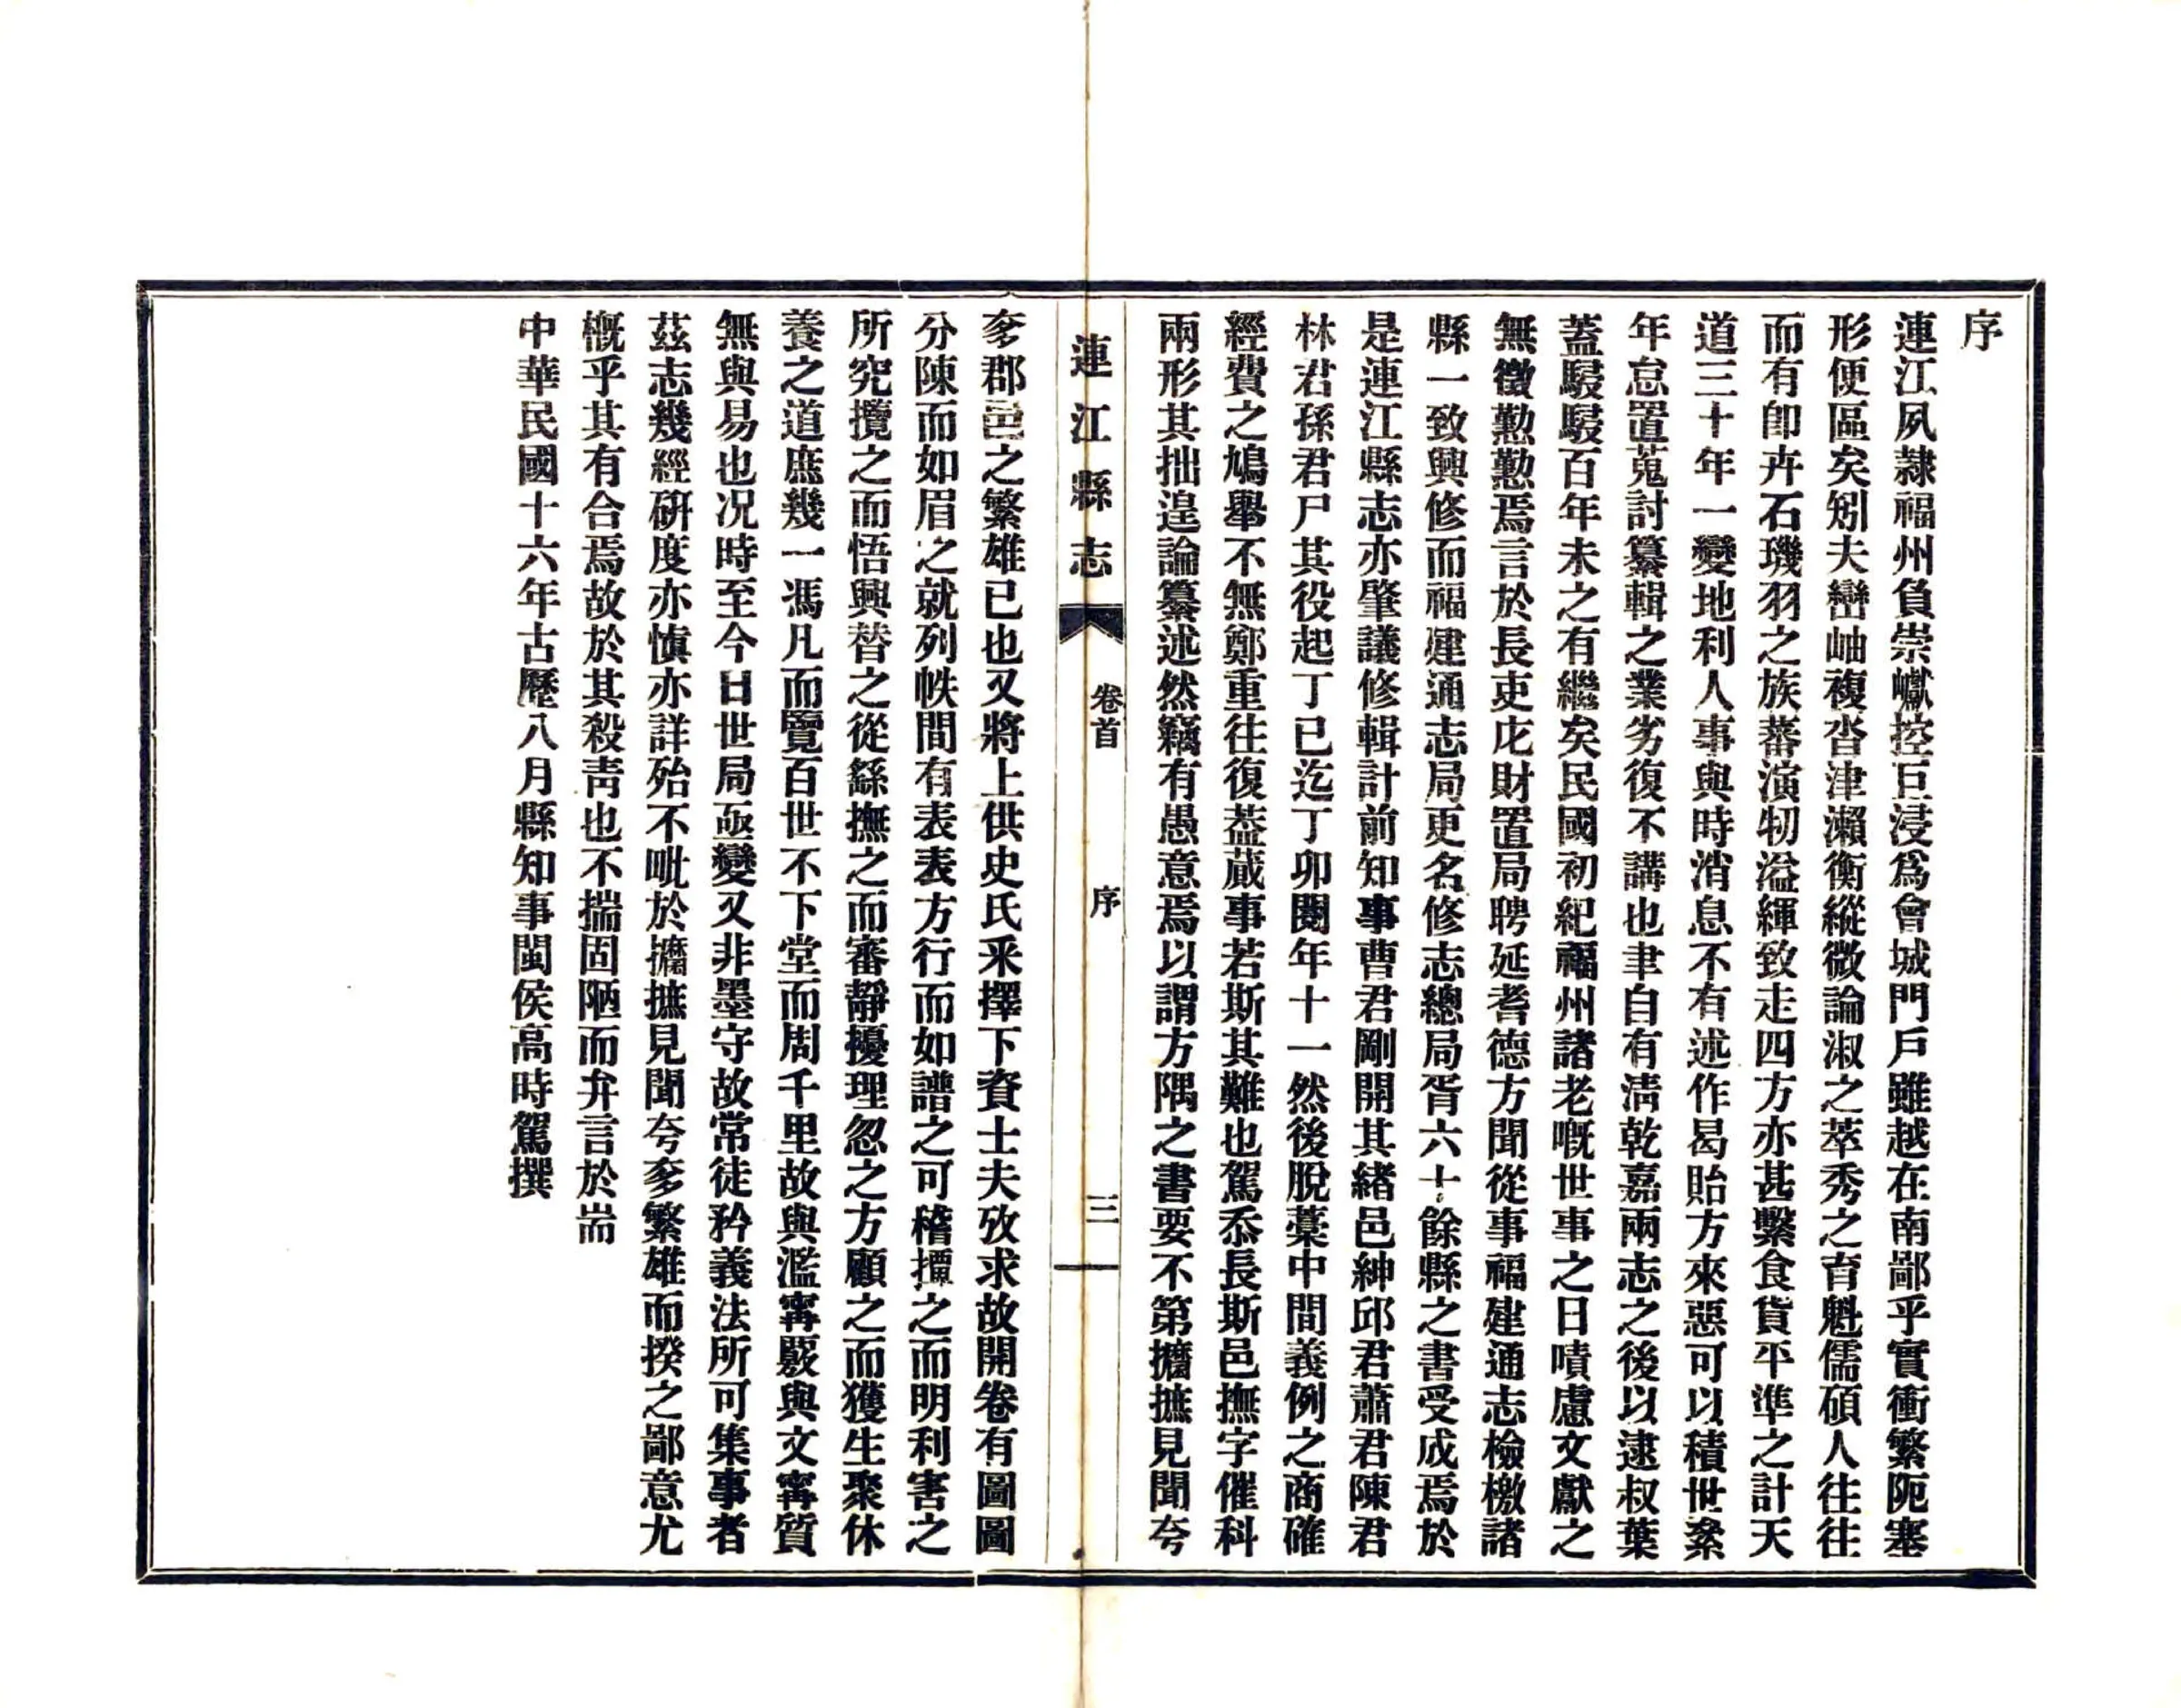 序
連江夙隸福州負崇巘控巨浸爲會城門戶雖越在南鄙乎實衝繁阨塞
形便區矣矧夫巒岫複沓津瀨衡縱微論淑之萃秀之育魁儒碩人往往
而有卽卉石璣羽之族蕃演牣溢緷致走四方亦甚繫食貨平準之計天
道三十年一變地利人事與時消息不有述作曷貽方來惡可以積世絫
年怠置蒐討纂輯之業劣復不講也聿自有淸乾嘉兩志之後以逮叔葉
蓋駸駸百年未之有繼矣民國初紀福州諸老嘅世事之日嘖慮文獻之
無徵懃懃焉言於長吏庀財置局聘延耆德方聞從事福建通志檢檄諸
縣一致興修而福建通志局更名修志總局胥六十餘縣之書受成焉於
是連江縣志亦肇議修輯計前知事曹君剛開其緒邑紳邱君蕭君陳君
林君孫君尸其役起丁巳迄丁卯閱年十一然後脫藁中間義例之商確
經費之鳩舉不無鄭重往復葢蕆事若斯其難也駕忝長斯邑撫字催科
兩形其拙遑論纂述然竊有愚意焉以謂方隅之書要不第擿摭見聞夸
連江縣志 卷首 序 三
奓郡邑之繁雄已也又將上供史氏釆擇下資士夫攷求故開卷有圖圖
分陳而如眉之就列帙間有表表方行而如譜之可稽撢之而明利害之
所究攬之而悟興替之從繇撫之而審靜擾理忽之方顧之而獲生聚休
養之道庶幾一馮凡而覽百世不下堂而周千里故與濫寗覈與文寗質
無與易也况時至今日世局亟變又非墨守故常徒矜義法所可集事者
茲志幾經硏度亦愼亦詳殆不呲於擿摭見聞夸奓繁雄而揆之鄙意尤
槪乎其有合焉故於其殺靑也不揣固陋而弁言於耑
中華民國十六年古歷八月縣知事閩侯高時駕撰